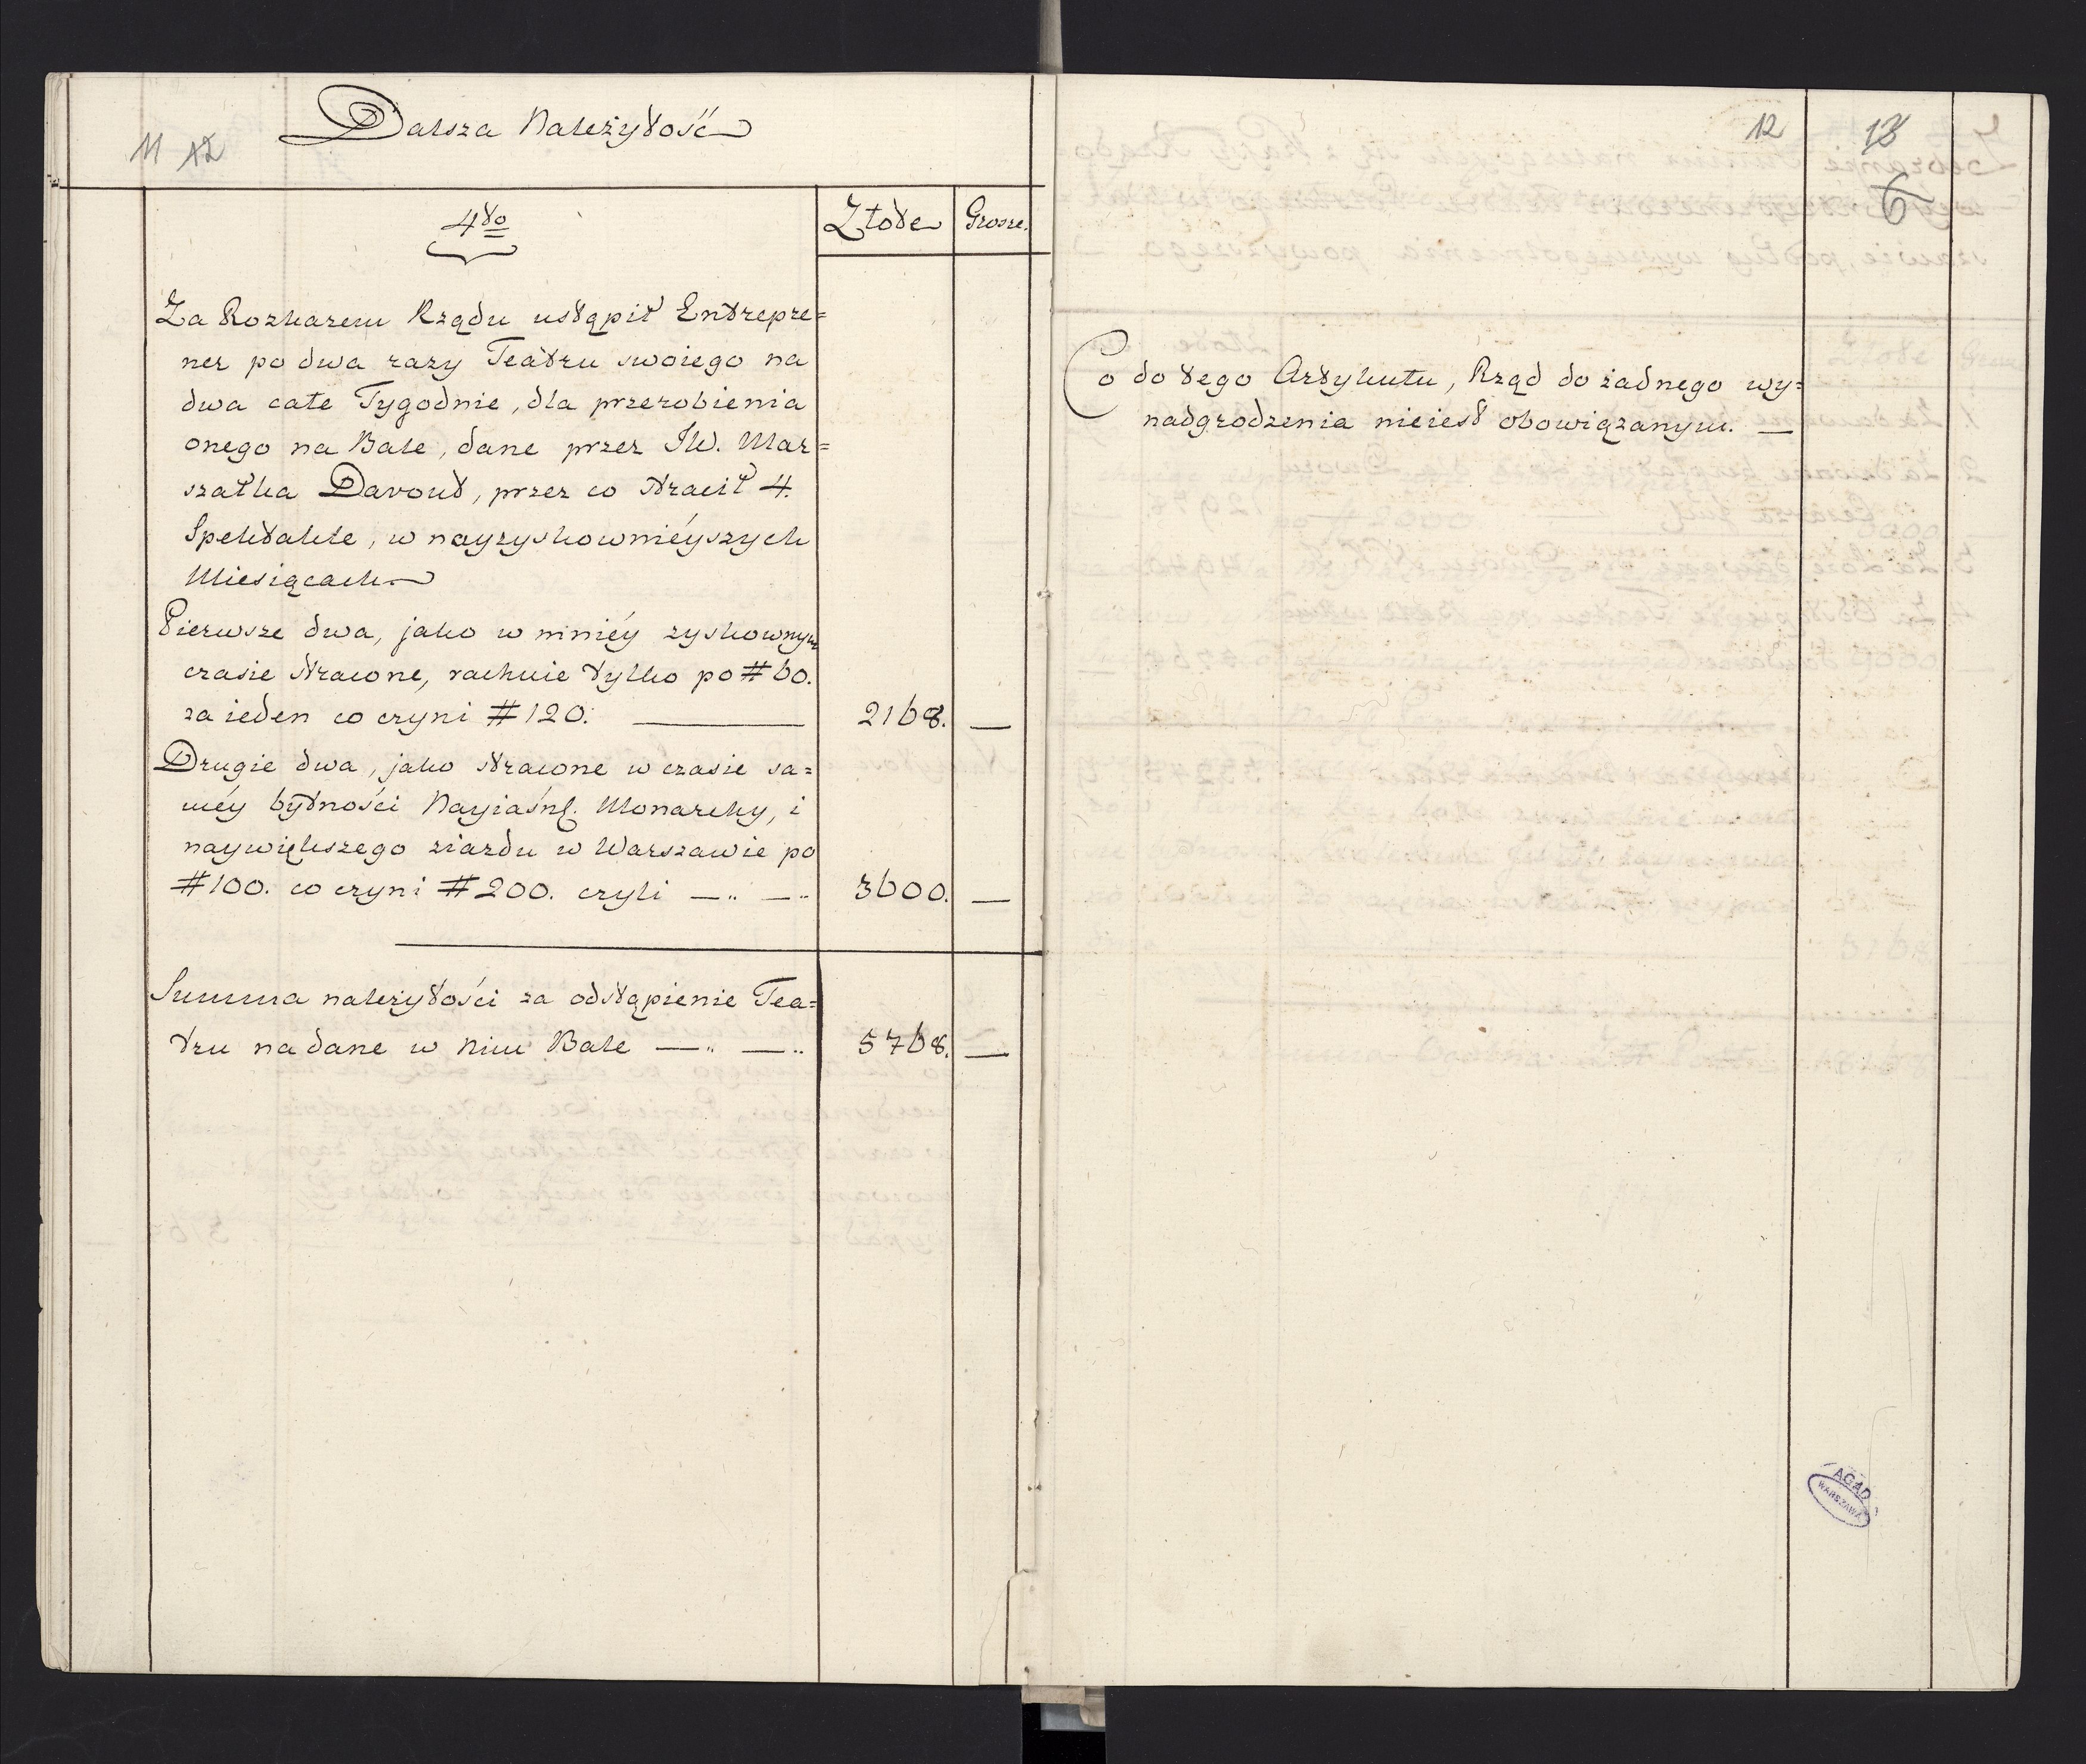 11 12
Dalsza Należytość
4to
Złote Grosze.
Za Rozkazem Rządu ustąpił Entrepre=
ner po dwa razy Teatru swoiego na
dwa całe Tygodnie, dla przerobienia
onego na Bale, dane przez JW. Mar=
szałka Davout, przez co stracił 4.
Spektakle, w nayzyskownieyszych
Miesiącach
Pierwsze dwa, jako w mniéy zyskownym
czasie stracone, rachuie tylko po # 60.
za ieden co czyni # 120. — 2168. —
Drugie dwa, jako stracone w czasie sa=
méy bytności Nayiaśn. Monarchy, i
naywiększego ziazdu w Warszawie po
# 100. co czyni # 200. czyli —.. —.. 3600. —
Summa należytości za odstąpienie Tea=
tru na dane w nim Bale —.. —.. 5768. —
12 13
6
Co do tego Artykułu, Rząd do żadnego wy=
nadgrodzenia nieiest obowiązanym. —
AGAD
WARSZAWA